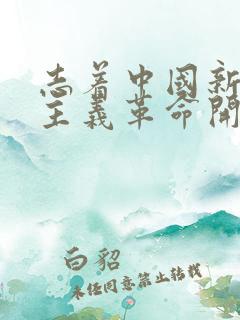 志着中國新
主義革命開
白貂
未经同意禁止转载